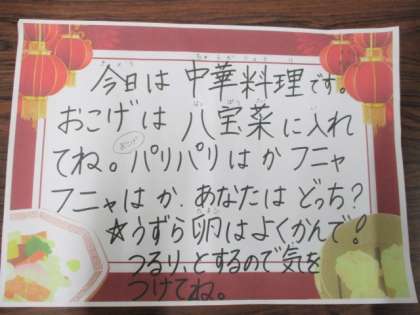 今日は 中華料理です。
おこげは 八宝菜に入れ
てね。パリパリはか フニャ
フニャはか、あなたは どっち?
☆うずら卵はよくかんで!
つるり、とするので気を
つけてね。